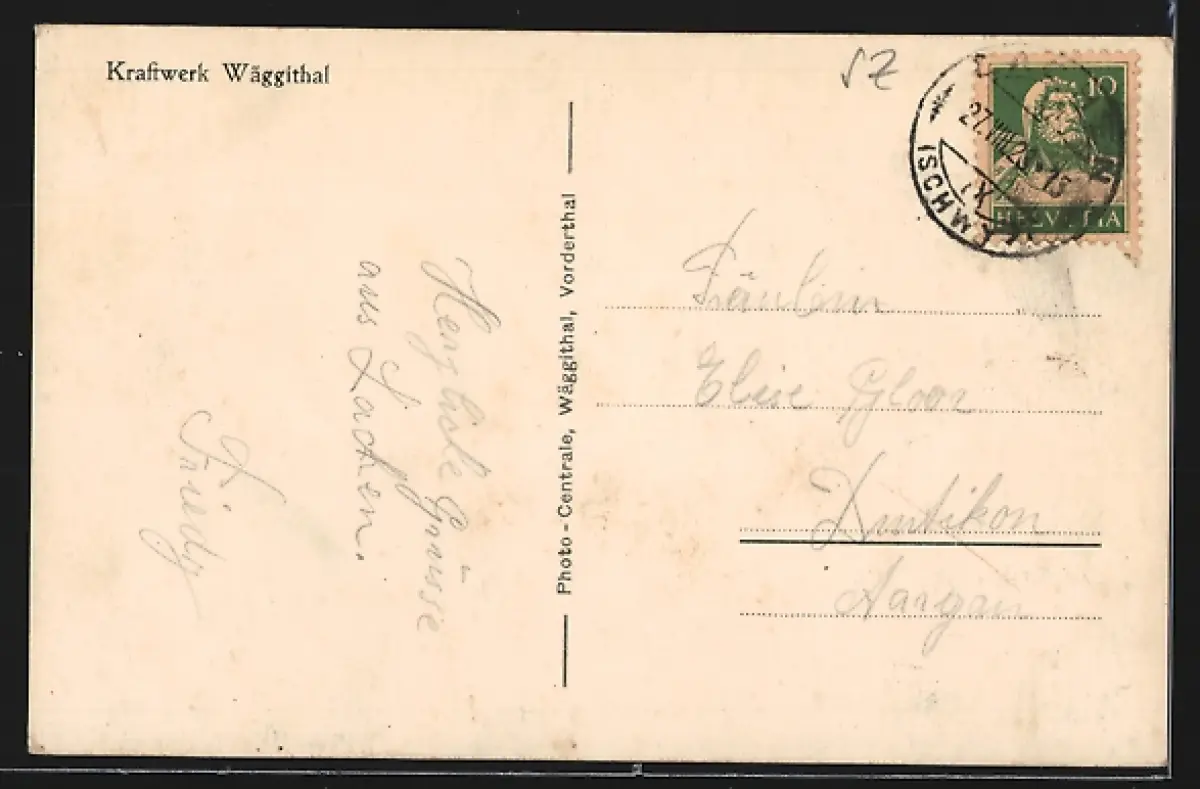 Kraftwerk Wäggithal
SZ
10
HELVETIA
27.VIII.
Photo-Centrale, Wäggithal, Vorderthal
Herzliche Grüsse
aus Lachen.
Friedy
Fräulein
Elise Gloor
Dintikon
Aargau